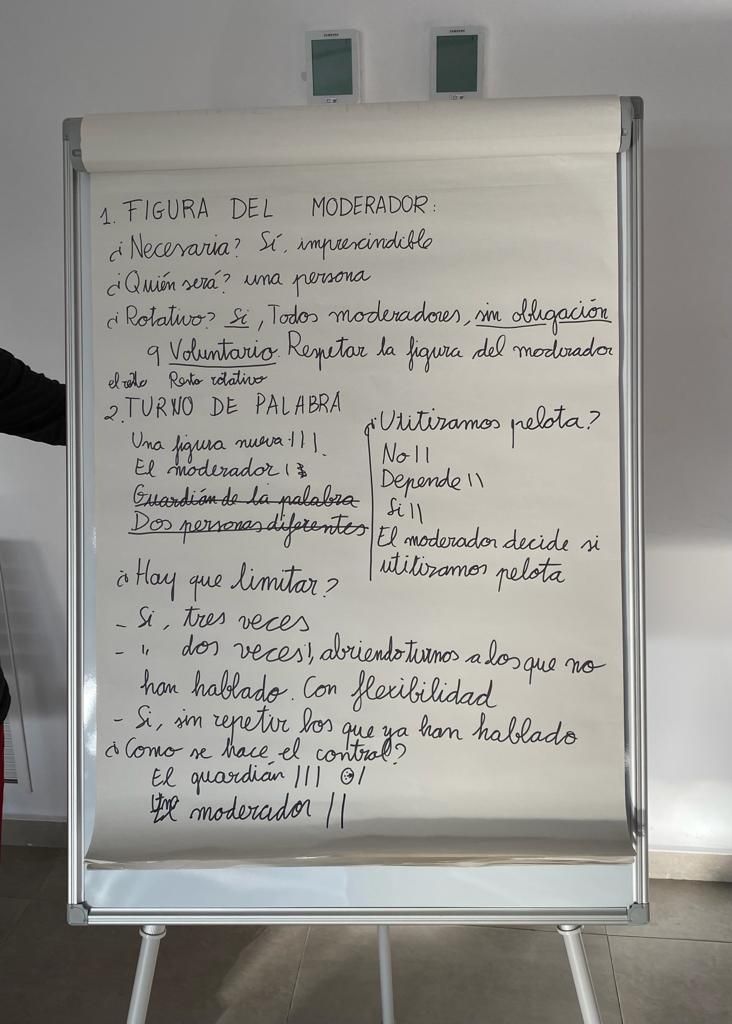 SAMSUNG
SAMSUNG
1. FIGURA DEL MODERADOR:
¿Necesaria? Sí, imprescindible
¿Quién será? una persona
¿Rotativo? Si, Todos moderadores, sin obligación
9 Voluntario. Respetar la figura del moderador
el Resto rotativo
2. TURNO DE PALABRA
Una figura nueva: |||.
El moderador |
Guardián de la palabra
Dos personas diferentes
¿Utitiramos pelota?
No ||
Depende ||
Si ||
El moderador decide si
utitizamos pelota
¿Hay que limitar?
- Si, tres veces
- " dos veces|, abriendo turnos a los que no
han hablado. Con flexibilidad
- Si, sin repetir los que ya han hablado
¿Como se hace el control?
El guardián |||
El moderador ||